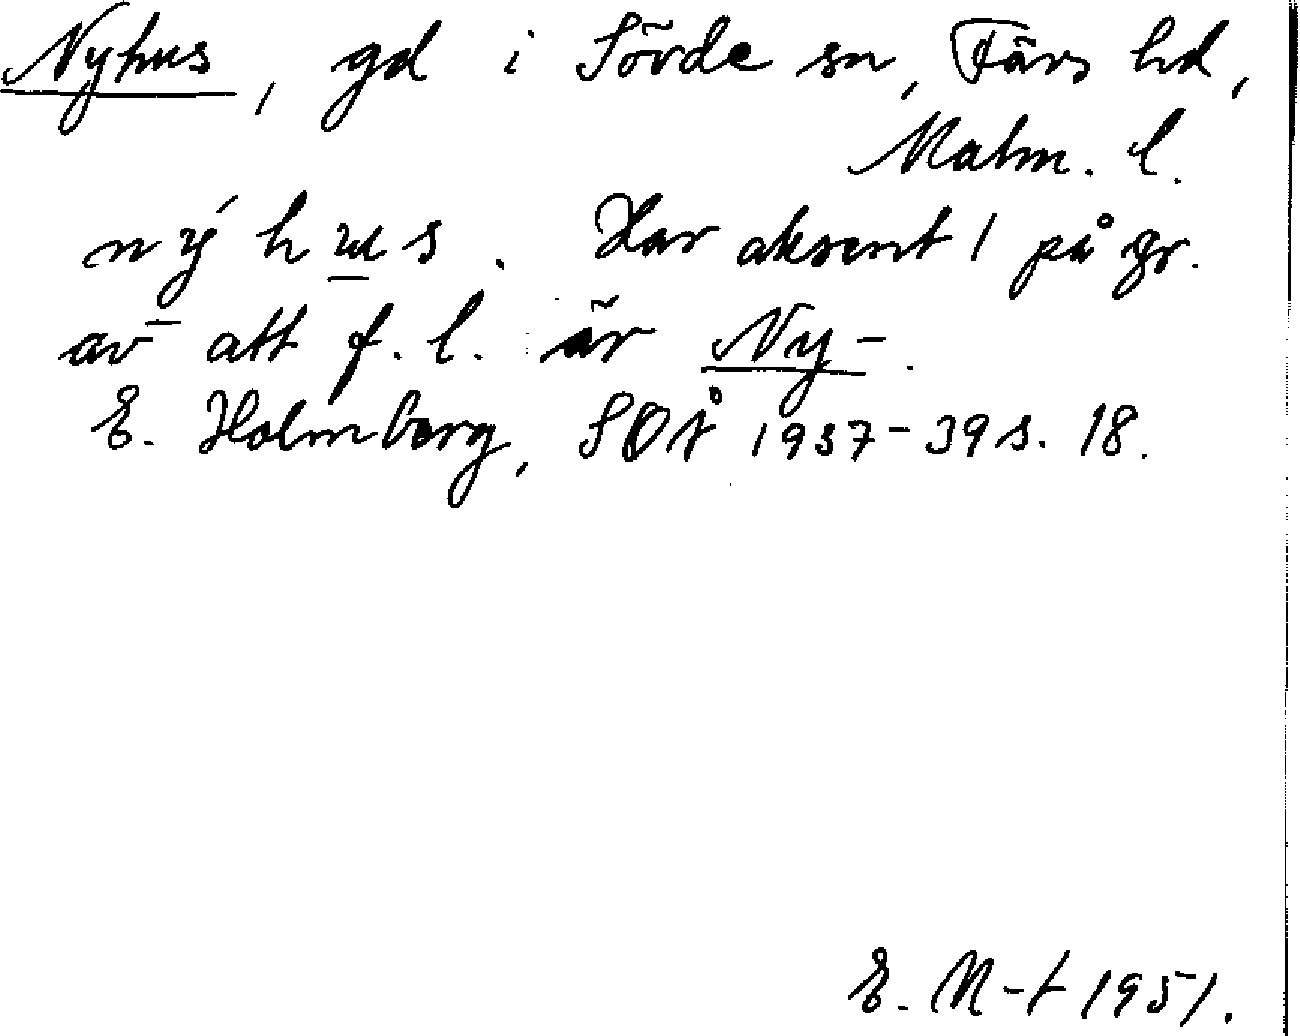 Nyhus, gd i Sövde sn, Färs hd,
Malm. l.
ný hus. Har aksent 1 på gr.
av att f. l. är Ny-.
E. Holmberg, SOÅ 1937-39 s. 18.
E. N-t 1951.